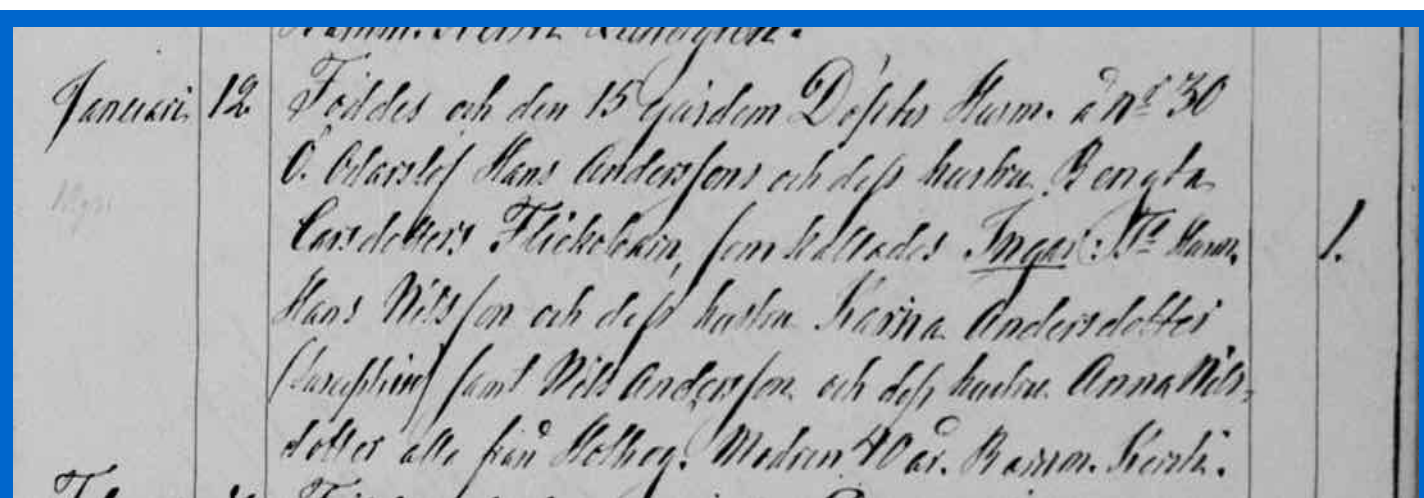 Januari 12 Föddes och den 15 ejusdem Döptes Husm. å No 30
Ö. Odarslöf Hans Anderssons och dess hustru Bengta
Larsdotters Flickebarn, som kallades Ingar: Tt. Husm. 1.
Hans Nilsson och dess hustru Karna Andersdotter
(Susceptrix) samt Nils Andersson och dess hustru Anna Nils-
dotter alla från Hobhög. Modren 40 år. Barnm. Kersti.